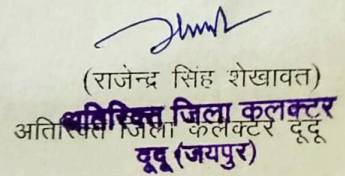 (राजेन्द्र सिंह शेखावत)
अतिरिक्त जिला कलक्टर
अतिरिक्त जिला कलेक्टर दूदू
दूदू (जयपुर)